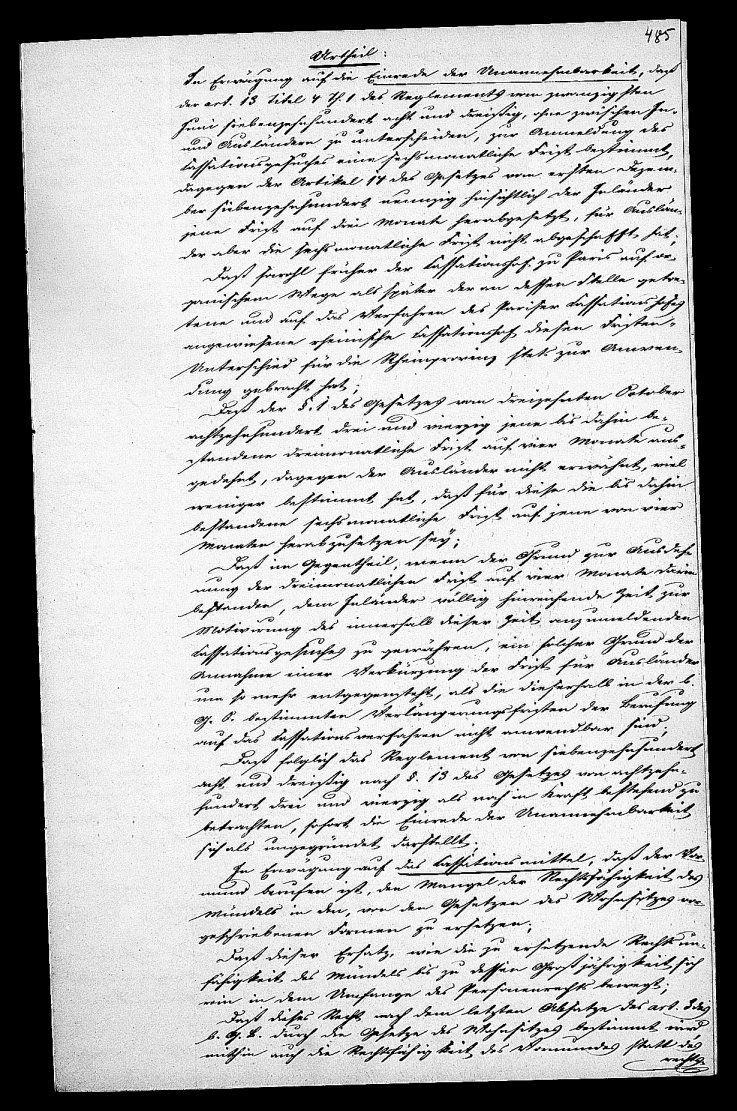 485
Urtheil:
In Erwägung auf die Einrede der Unannehmbarkeit, daß
der art. 13 titel 4 Th. 1 des Reglements vom zwanzigsten
Juni siebenzehnhundert acht und dreißig, ohne zwischen In-
und Ausländern zu unterscheiden, zur Anmeldung des
Cassationsgesuches eine sechsmonatliche Frist bestimmt,
dagegen der Artikel 14 des Gesetzes vom ersten Dezem-
ber siebenzehnhundert neunzig hinsichtlich der Inländer
jene Frist auf drei Monate herabgesetzt, für Auslän-
der aber die sechsmonatliche Frist nicht abgeschafft hat;
Daß sowohl früher der Cassationshof zu Paris auf or-
ganischem Wege als später der an dessen Stelle getre-
tene und auf das Verfahren des Pariser Cassationshofes
angewiesene rheinische Cassationshof diesen Fristen-
Unterschied für die Rheinprovinz stets zur Anwen-
dung gebracht hat;
Daß der §. 1 des Gesetzes vom dreizehnten October
achtzehnhundert drei und vierzig jene bis dahin be-
standene dreimonatliche Frist auf vier Monate aus-
gedehnt, dagegen der Ausländer nicht erwähnt, viel
weniger bestimmt hat, daß für diese die bis dahin
bestandene sechsmonatliche Frist auf jene von vier
Monaten herabzusetzen sey;
Daß im Gegentheil, wenn der Grund zur Ausdeh-
nung der dreimonatlichen Frist auf vier Monate darin
bestanden, dem Inländer völlig hinreichende Zeit zur
Motivirung des innerhalb dieser Zeit anzumeldenden
Cassationsgesuches zu gewähren, ein solcher Grund der
Annahme einer Verkürzung der Frist für Ausländer
um so mehr entgegensteht, als die dieserhalb in der b.
G. O. bestimmten Verlängerungsfristen der Berufung
auf das Cassationsverfahren nicht anwendbar sind;
Daß folglich das Reglement von siebenzehnhundert
acht und dreißig nach §. 13 des Gesetzes von achtzehn-
hundert drei und vierzig als noch in Kraft bestehend zu
betrachten, sofort die Einrede der Unannehmbarkeit
sich als ungegründet darstellt;
In Erwägung auf das Cassationsmittel, daß der Vor-
mund berufen ist, den Mangel der Rechtsfähigkeit des
Mündels in den, von den Gesetzen des Wohnsitzes vor-
geschriebenen Formen zu ersetzen;
Daß dieser Ersatz, wie die zu ersetzende Rechtsun-
fähigkeit des Mündels bis zu dessen Großjährigkeit sich
rein in dem Umfange des Personenrechts bewegt;
Daß dieses Recht nach dem letzten Absatze des art. 3 des
b. G. B. durch die Gesetze des Wohnsitzes bestimmt wird
mithin auch die Rechtsfähigkeit des Vormundes statt des
rechts-